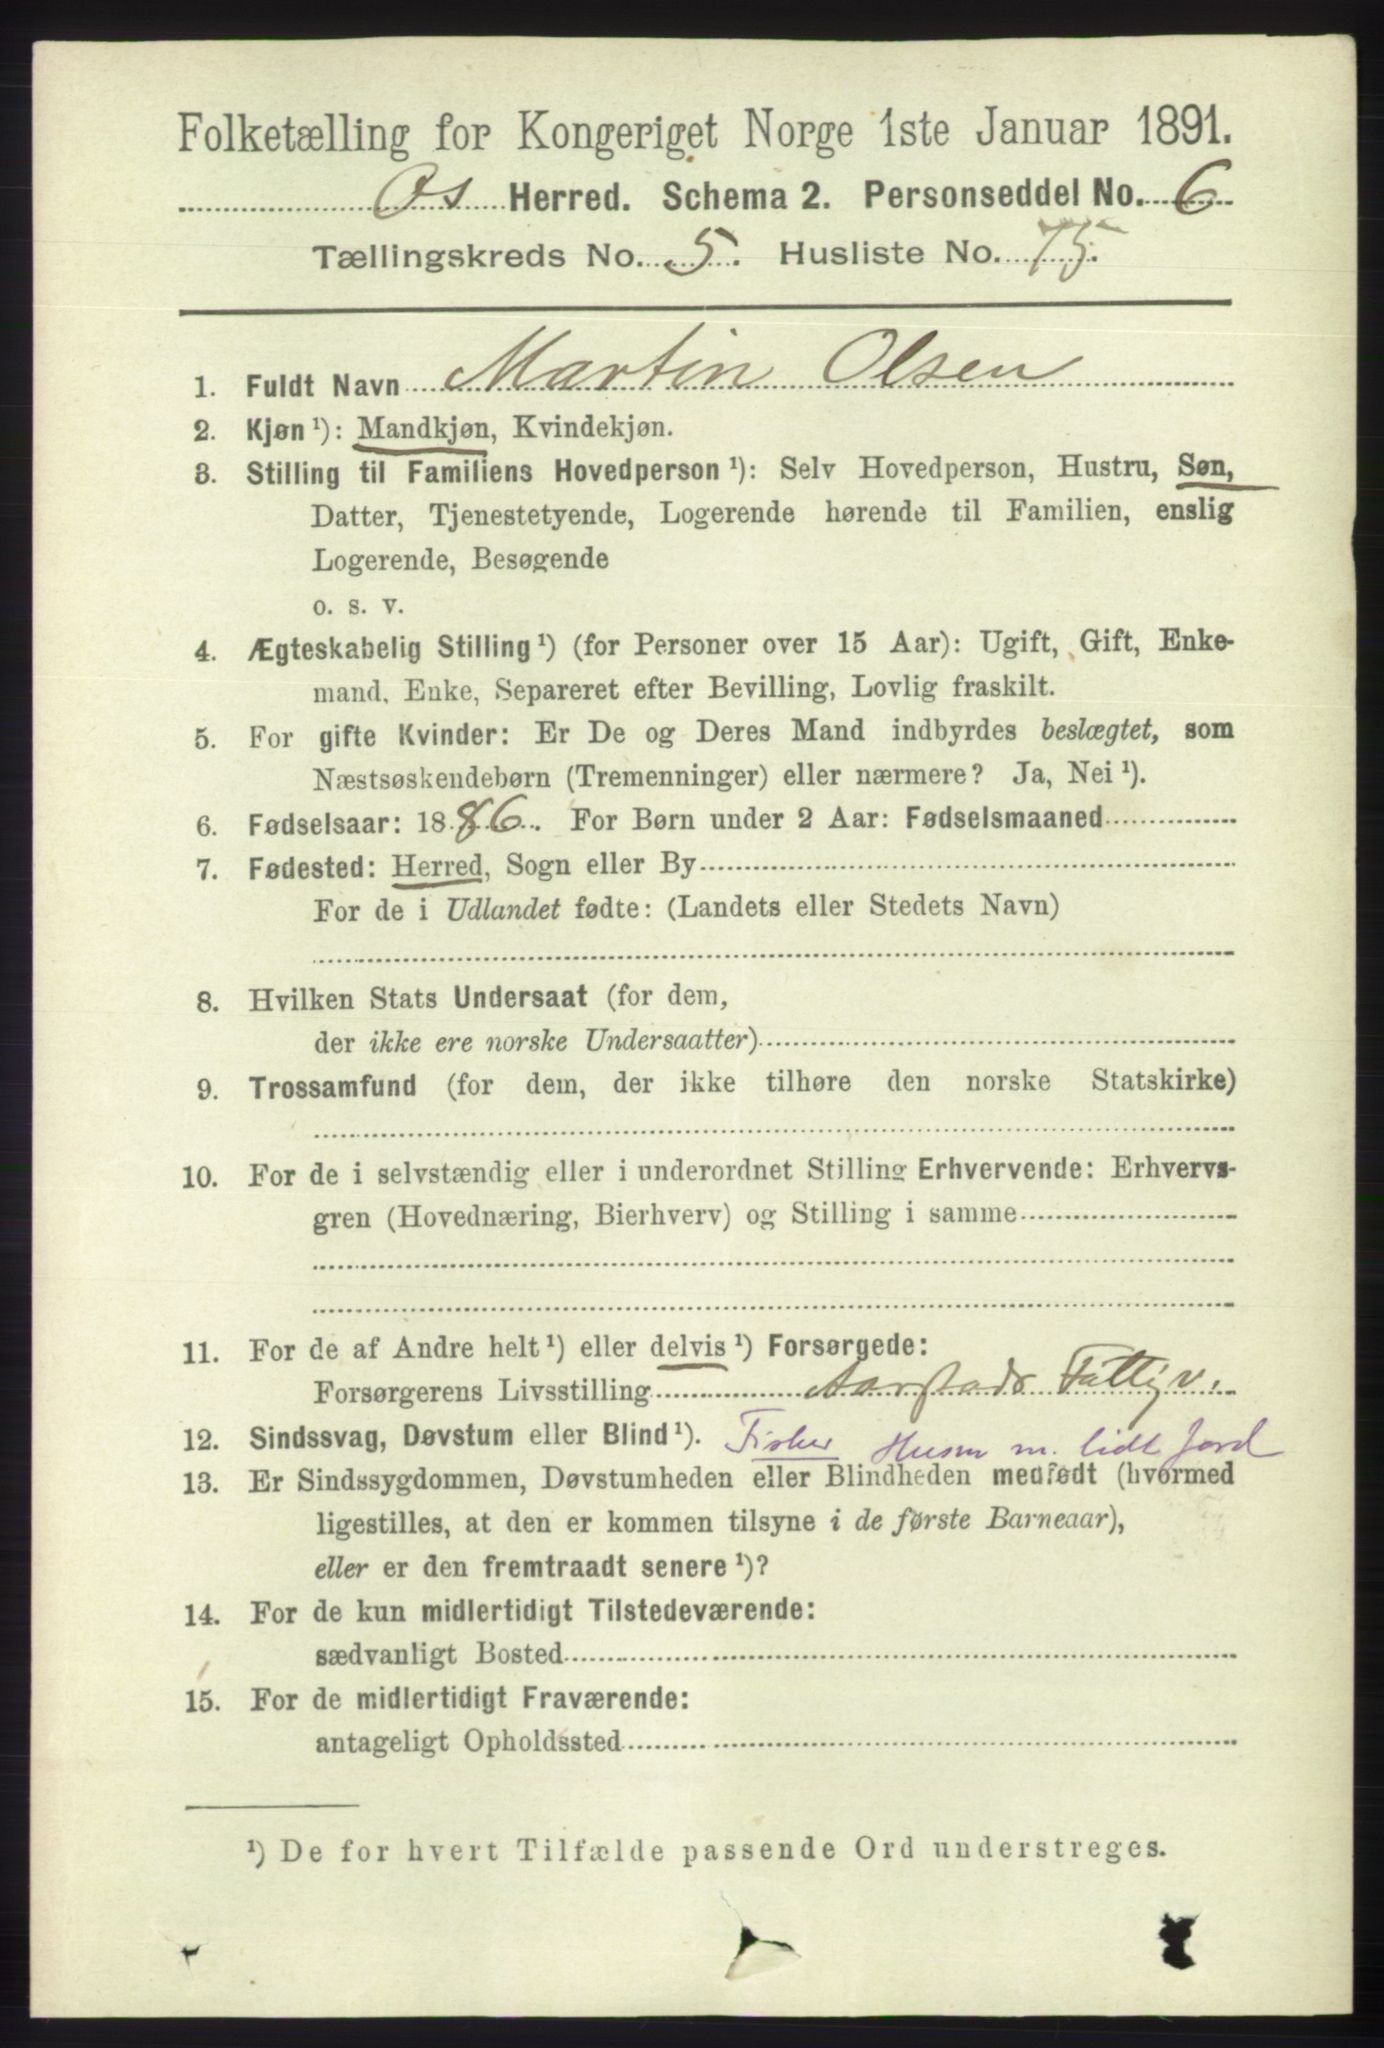 Folketælling for Kongeriget Norge 1ste Januar 1891.
Os Herred. Schema 2. Personseddel No. 6
Tællingskreds No. 5. Husliste No. 75.
1. Fuldt Navn Martin Olsen
2. Kjøn ¹): Mandkjøn, Kvindekjøn.
3. Stilling til Familiens Hovedperson ¹): Selv Hovedperson, Hustru, Søn,
Datter, Tjenestetyende, Logerende hørende til Familien, enslig
Logerende, Besøgende
o. s. v.
4. Ægteskabelig Stilling ¹) (for Personer over 15 Aar): Ugift, Gift, Enke-
mand, Enke, Separeret efter Bevilling, Lovlig fraskilt.
5. For gifte Kvinder: Er De og Deres Mand indbyrdes beslægtet, som
Næstsøskendebørn (Tremenninger) eller nærmere? Ja, Nei ¹).
6. Fødselsaar: 1886. For Børn under 2 Aar: Fødselsmaaned
7. Fødested: Herred, Sogn eller By
For de i Udlandet fødte: (Landets eller Stedets Navn)
8. Hvilken Stats Undersaat (for dem,
der ikke ere norske Undersaatter)
9. Trossamfund (for dem, der ikke tilhøre den norske Statskirke)
10. For de i selvstændig eller i underordnet Stilling Erhvervende: Erhvervs-
gren (Hovednæring, Bierhverv) og Stilling i samme
11. For de af Andre helt ¹) eller delvis ¹) Forsørgede:
Forsørgerens Livsstilling Aarstads Fattigv.
12. Sindssvag, Døvstum eller Blind ¹). Fisker Husm m. lidt Jord
13. Er Sindssygdommen, Døvstumheden eller Blindheden medfødt (hvormed
ligestilles, at den er kommen tilsyne i de første Barneaar),
eller er den fremtraadt senere ¹)?
14. For de kun midlertidigt Tilstedeværende:
sædvanligt Bosted
15. For de midlertidigt Fraværende:
antageligt Opholdssted
¹) De for hvert Tilfælde passende Ord understreges.